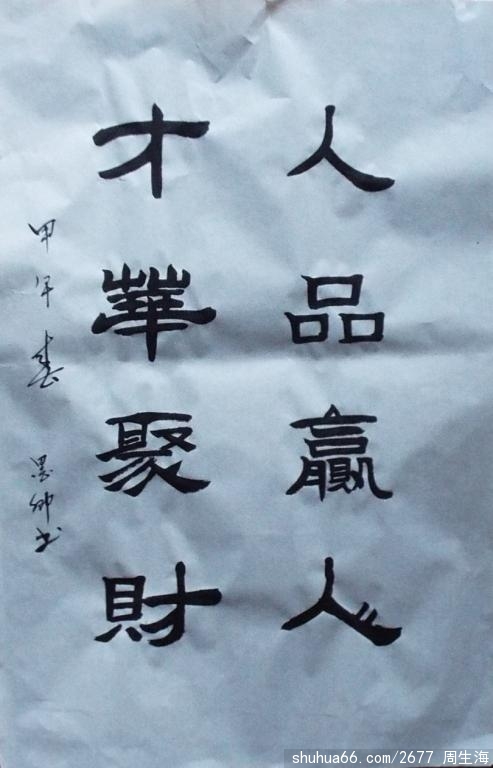 人品贏人
才華聚財
甲午春 墨卿书
shuhua66.com/2677 周生海